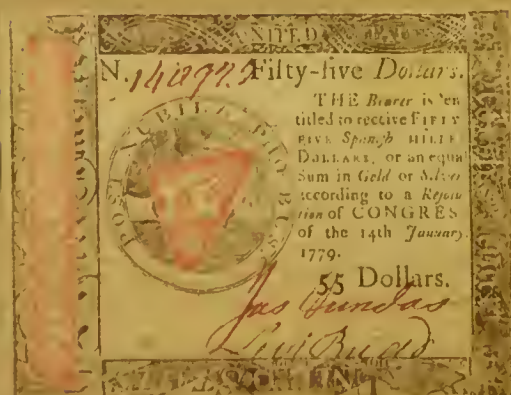 UNITED
N. 148973 Fifty-five Dollars.
THE Bearer is en
titled to receive FIFTY
FIVE Spanish MILLE
DOLLARS, or an equal
Sum in Gold or Silver
according to a Resolu
tion of CONGRES
of the 14th January,
1779.
55 Dollars.
POST NUBILA PHOEBUS
Jas Dundas
Levi Budd